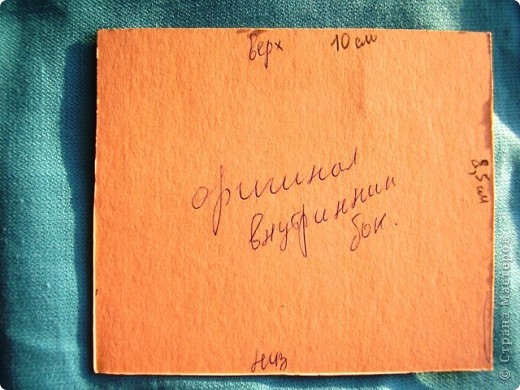 верх 10 см
8,5 см
оригинал
внутринний
бок.
низ
© Страна Мастеров